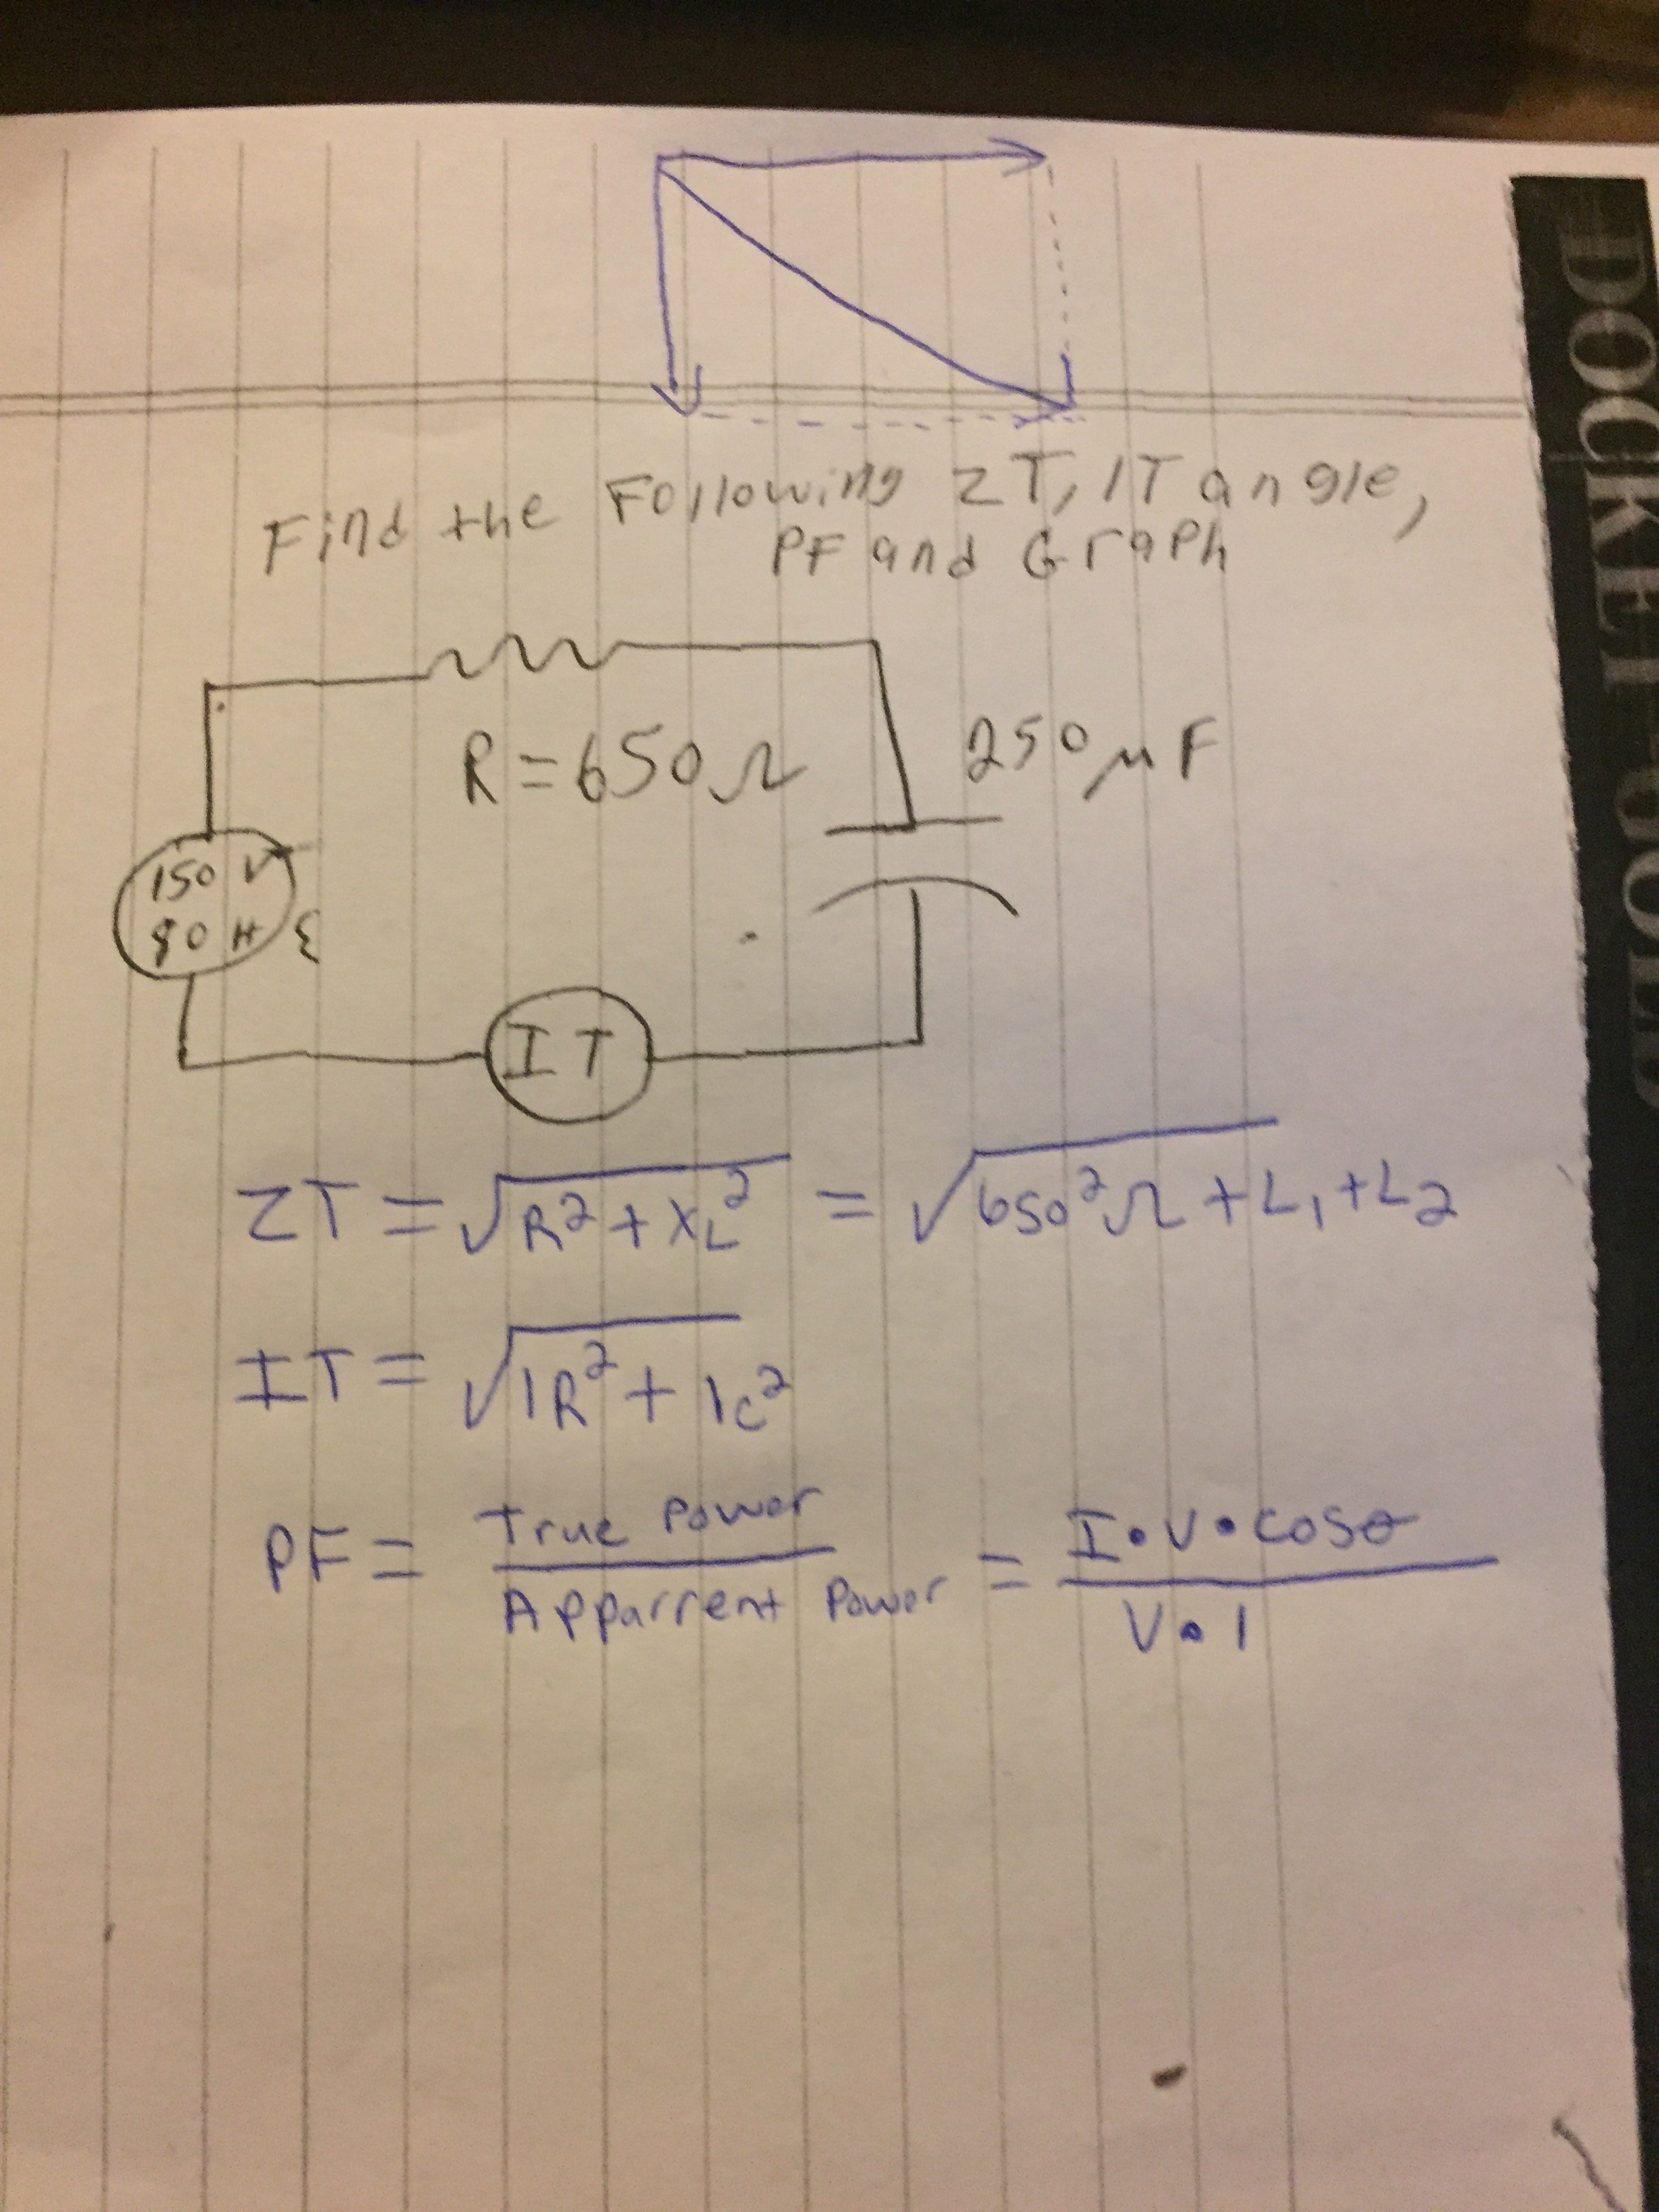 Find the Following ZT, IT angle,
PF and Graph
R=650Ω
250μF
150 V
80 Hz
IT
ZT = √R²+XL² = √650²Ω+L₁+L₂
IT = √IR²+Ic²
PF = True Power / Apparrent Power = I•V•cosθ / V•I
DOCKET GOLD